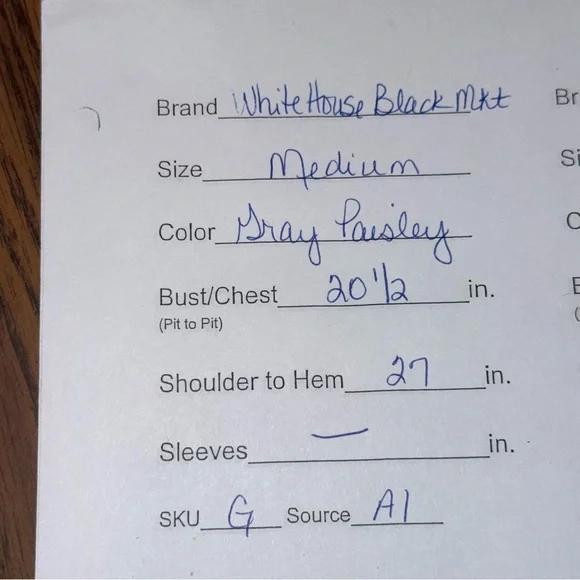 Brand White House Black Mkt
Size Medium
Color Gray Paisley
Bust/Chest 20 1/2 in.
(Pit to Pit)
Shoulder to Hem 27 in.
Sleeves — in.
SKU G Source A1
Br
Si
C